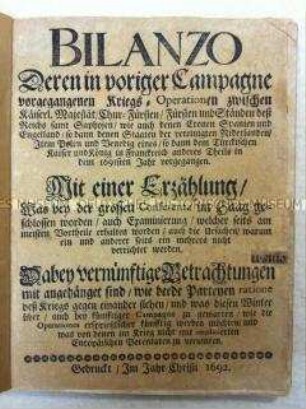 BILANZO
Deren in voriger Campagne
vorgegangenen Kriegs-Operationen zwischen
Käiserl. Majestät, Chur-Fürsten / Fürsten und Ständen deß
Reichs samt Saphoyen / wie auch denen Cronen Spanien und
Engelland / so dann denen Staaten der vereinigten Niderlanden /
Item Polen und Venedig eines / so dann dem Türckischen
Käiser und König in Franckreich anderes Theils in
dem 1691sten Jahr vorgegangen.
Mit einer Erzählung /
Was bey der grossen Conferentz im Haag ge-
schlossen worden / auch Examinierung / welcher seits am
meisten Vortheile erhalten worden / auch die Ursachen / warum
ein und anderer seits ein mehrers nicht
verrichtet worden.
Dabey vernünfftige Betrachtungen
mit angehänget sind / wie beede Partheyen ratione
deß Kriegs gegen einander stehen / und was diesen Winter
über / auch bey künfftiger Campagne zu gewarten / wie die
Operationes ersprießlicher künfftig werden möchten / und
was von denen im Krieg nicht mit
Europäischen Potentaten zu vermuten.
Gedruckt / Im Jahr Christi 1692.